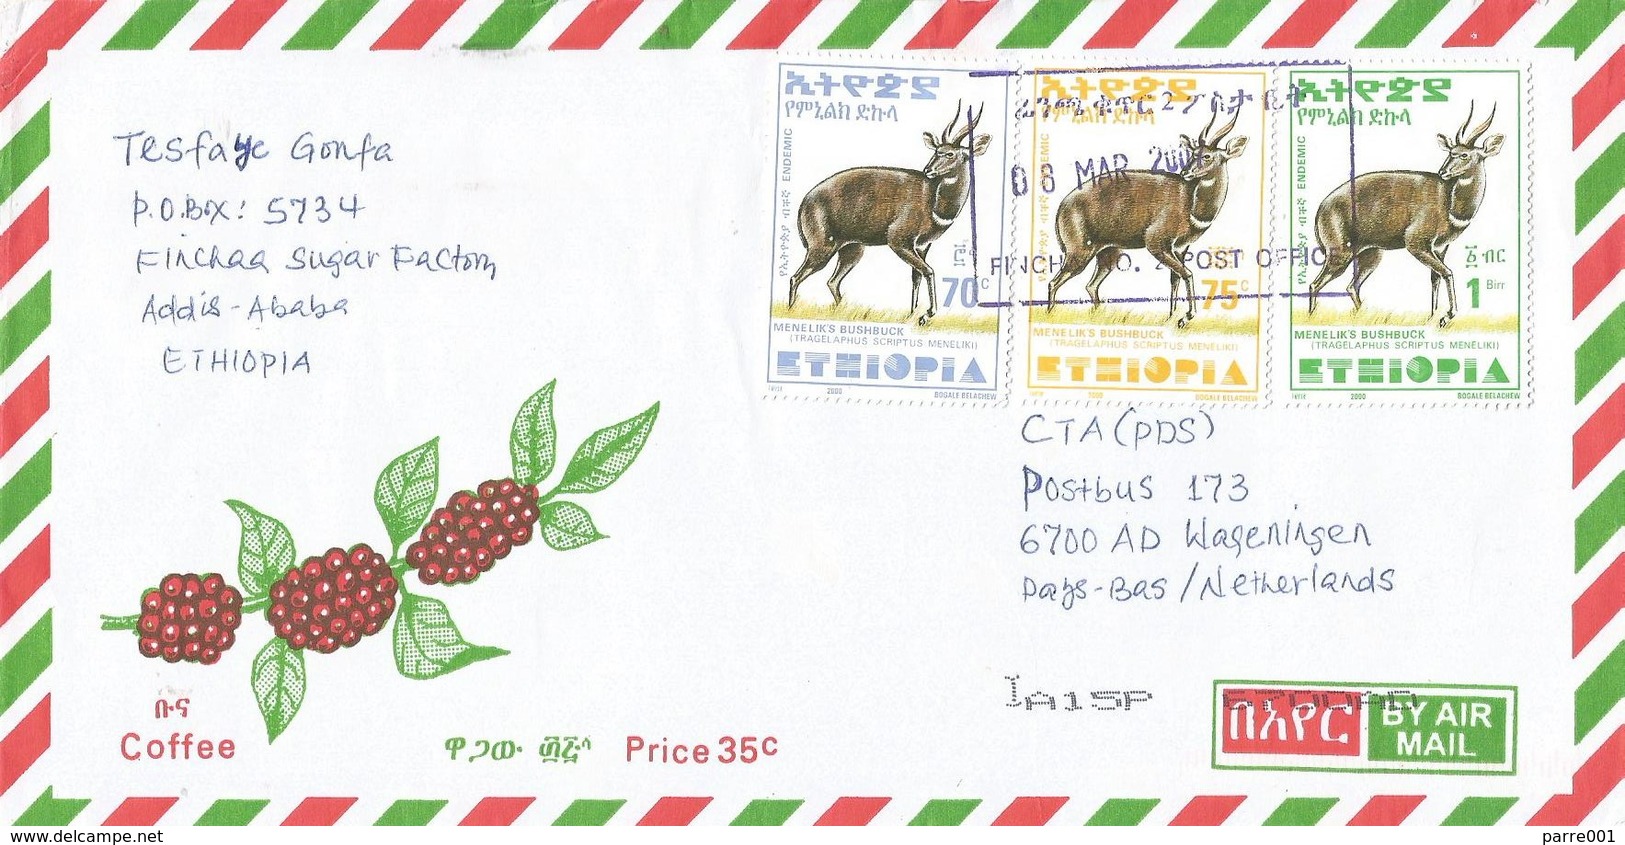 Tesfaye Gonfa
P.O.Box: 5734
Finchaa Sugar Factory
Addis-Ababa
ETHIOPIA
ኢትዮጵያ
የምኒልክ ድኩላ
የኢትዮጵያ ብቸኛ ENDEMIC
፸ሣ
70c
MENELIK'S BUSHBUCK
(TRAGELAPHUS SCRIPTUS MENELIKI)
ETHIOPIA
2000
BOGALE BELACHEW
ኢትዮጵያ
የምኒልክ ድኩላ
የኢትዮጵያ ብቸኛ ENDEMIC
75c
MENELIK'S BUSHBUCK
(TRAGELAPHUS SCRIPTUS MENELIKI)
ETHIOPIA
2000
BOGALE BELACHEW
ኢትዮጵያ
የምኒልክ ድኩላ
የኢትዮጵያ ብቸኛ ENDEMIC
፩ ብር
1 Birr
MENELIK'S BUSHBUCK
(TRAGELAPHUS SCRIPTUS MENELIKI)
ETHIOPIA
2000
BOGALE BELACHEW
ቁጥር 2 ፖስታ ቤት
08 MAR
NO. 2 POST OFFICE
CTA (PDS)
Postbus 173
6700 AD Wageningen
Pays-Bas/Netherlands
IA15P
በአየር BY AIR
MAIL
ቡና
Coffee
ዋጋው ፴፭ሳ Price 35c
delcampe.net
parre001